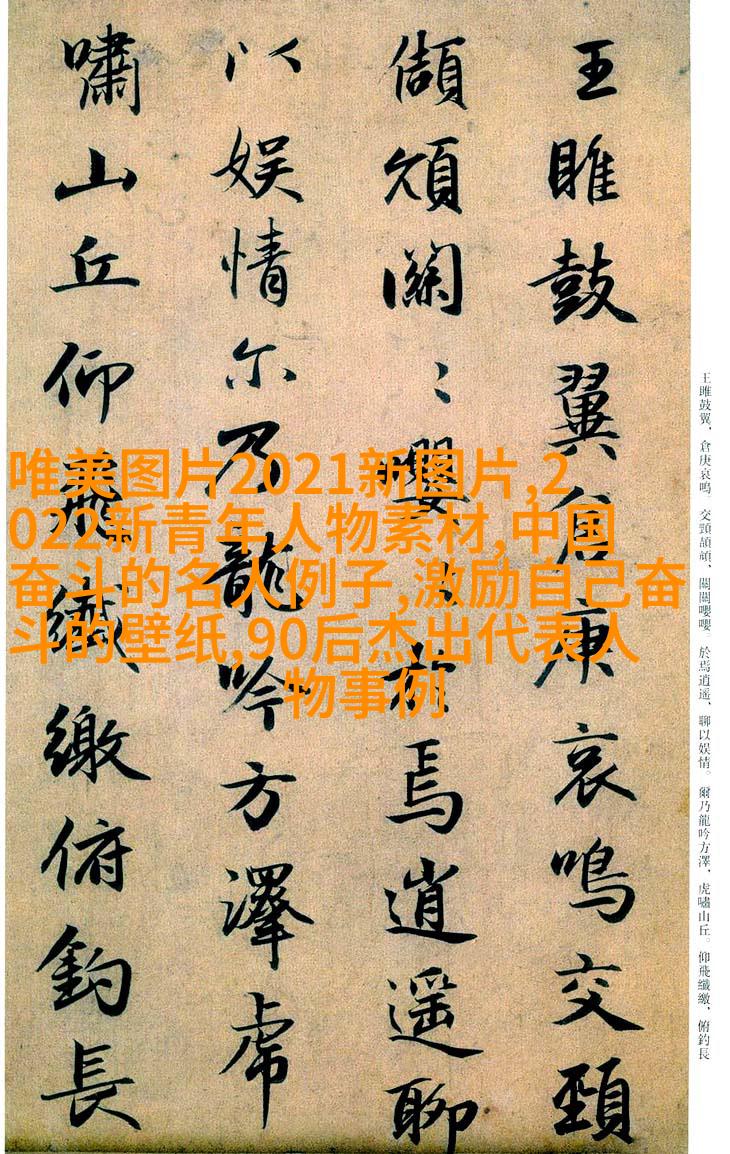 王雎鼓翼倉庚哀鳴交頸
頡頏關〻嚶〻於焉逍遥聊
以娱情尔乃龍吟方澤虎
嘯山丘仰飛纖繳俯釣長
王雎鼓翼、倉庚哀鳴。交頸頡頏、關關嚶嚶。於焉逍遥、聊以娱情。爾乃龍吟方澤、虎嘯山丘。仰飛纖繳、俯釣長
唯美图片2021新图片,2
022新青年人物素材,中国
奋斗的名人例子,激励自己奋
斗的壁纸,90后杰出代表人
物事例